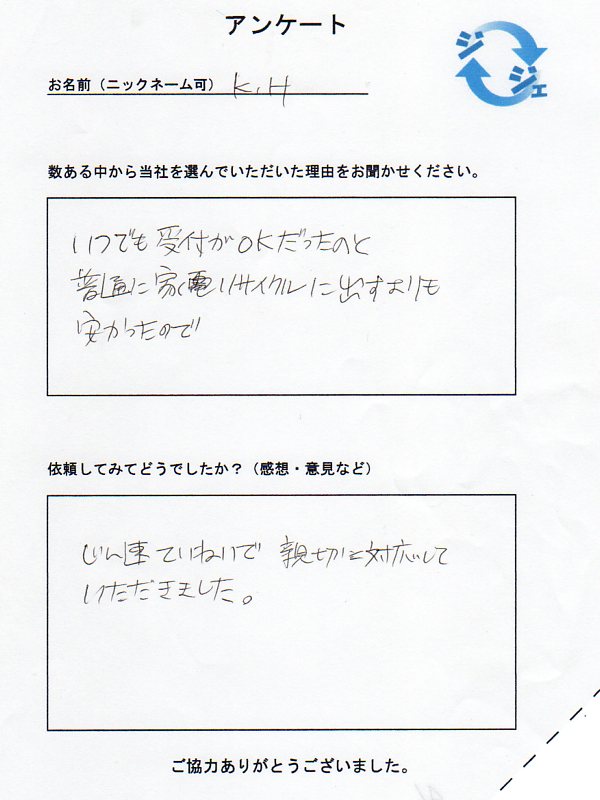 アンケート
ジジェ
お名前（ニックネーム可） K.H
数ある中から当社を選んでいただいた理由をお聞かせください。
いつでも受付がOKだったのと
普通に家電リサイクルに出すよりも
安かったので
依頼してみてどうでしたか？（感想・意見など）
じん速ていねいで 親切に対応して
いただきました。
ご協力ありがとうございました。